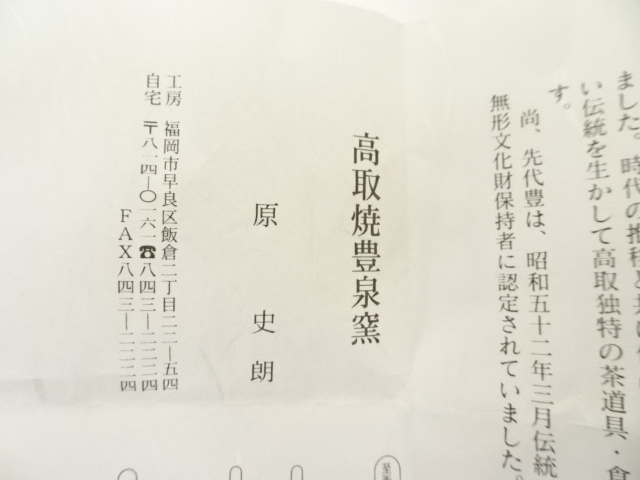 ました。時代の推移と共に
い伝統を生かして高取独特の茶道具・食
す。
尚、先代豊は、昭和五十二年三月伝統
無形文化財保持者に認定されていました。
高取焼豊泉窯
原史朗
工房 福岡市早良区飯倉二丁目二二―五四
自宅 〒八一四―〇一六一☎八四三―二二二四
FAX八四三―二二二四